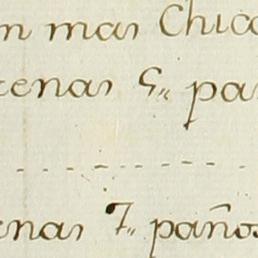 n mas Chico
cenas 5,, pa
- - - - - - -
enas 7,, paños